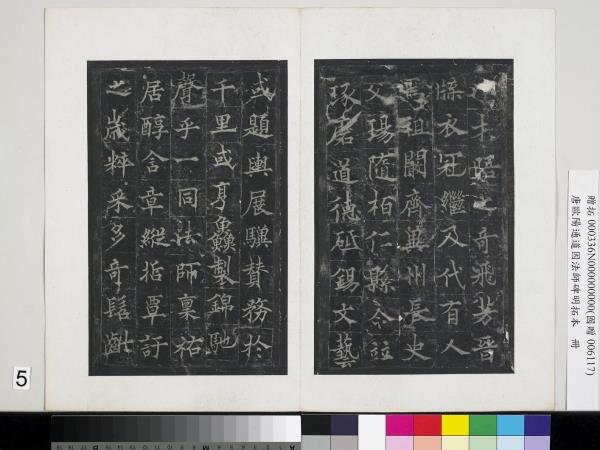 才昭之奇飛芳晉
牒衣冠繼及代有人
焉祖闕齊冀州長史
父瑒隋柏仁縣令竝
琢磨道德砥錫文藝
或題輿展驥贊務於
千里或亨鱻製錦馳
聲乎一同法師稟祐
居醇含章縱括覃訏
之歲粹采多奇髫齔
贈拓 000336N000000000(國贈 006117)
唐歐陽通道因法師碑明拓本 冊
5